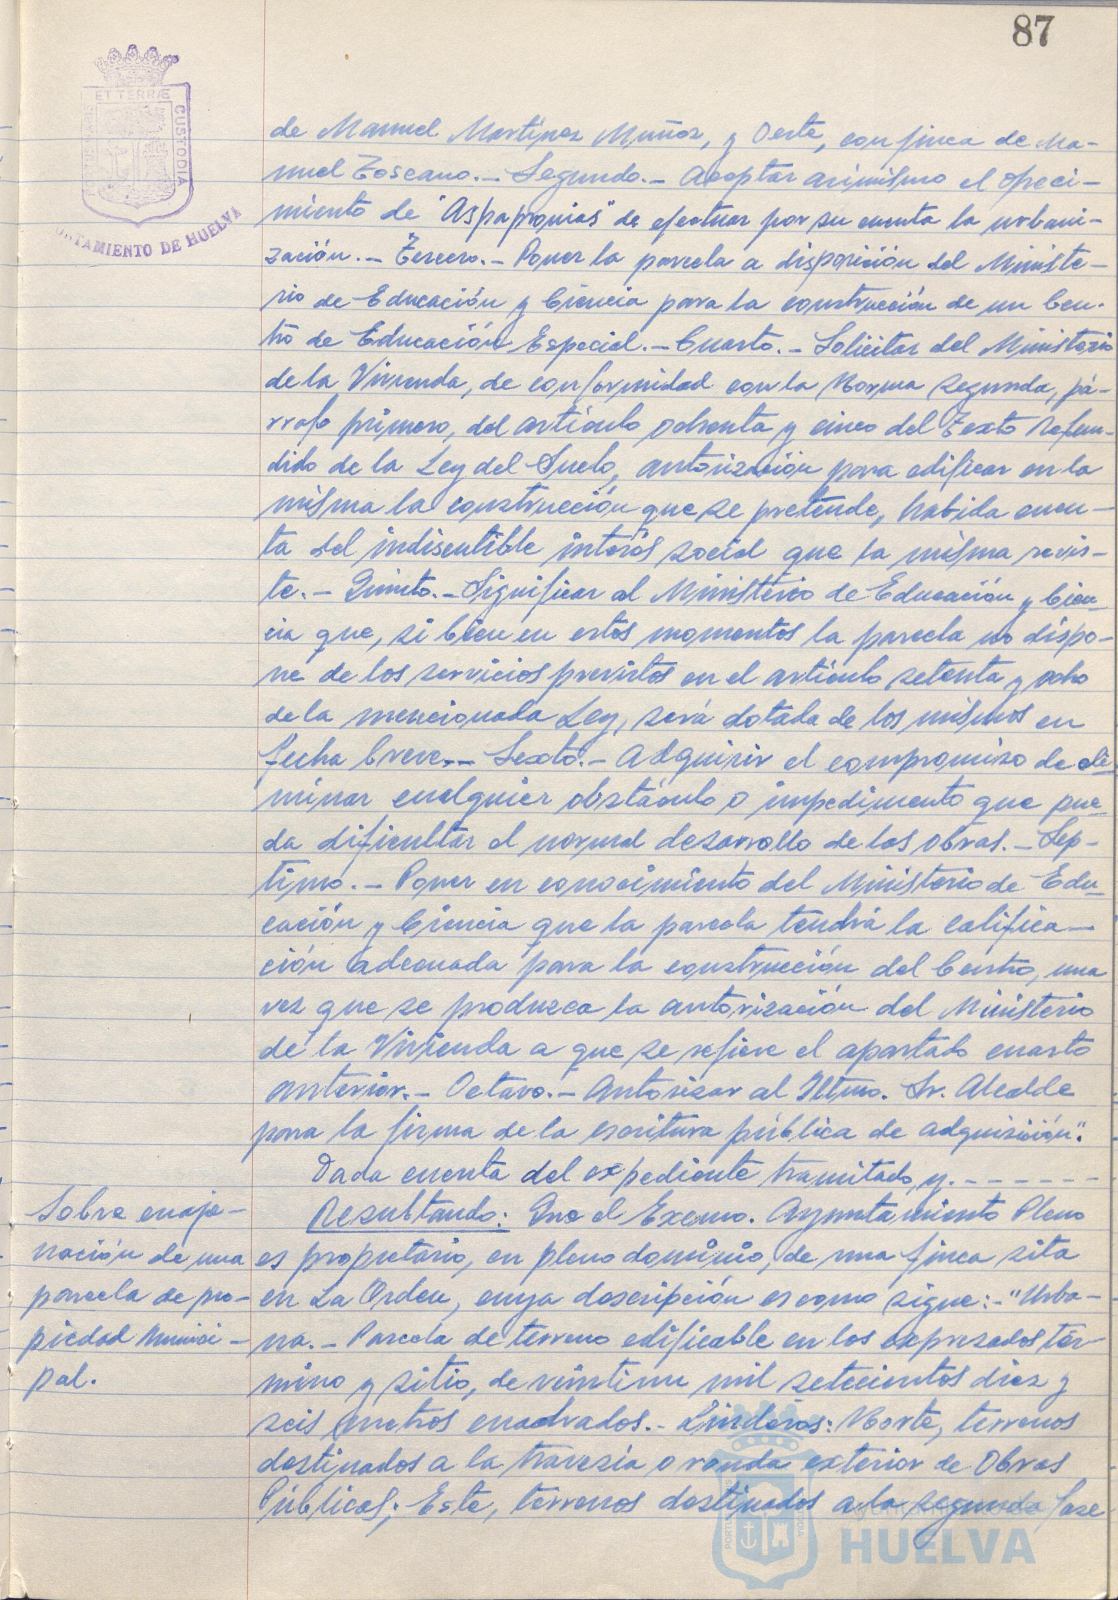 87
ET TERRÆ
CUSTODIA
AYUNTAMIENTO DE HUELVA
de Manuel Martínez Muñoz, y Oeste, con finca de Ma-
nuel Toscano.- Segundo.- Aceptar asimismo el ofreci-
miento de "Aspapronias" de efectuar por su cuenta la urbani-
zación.- Tercero.- Poner la parcela a disposición del Ministe-
rio de Educación y Ciencia para la construcción de un Cen-
tro de Educación Especial.- Cuarto.- Solicitar del Ministerio
de la Vivienda, de conformidad con la Norma segunda, pá-
rrafo primero, del artículo ochenta y cinco del Texto Refun-
dido de la Ley del Suelo, autorización para edificar en la
misma la construcción que se pretende, habida cuen-
ta del indiscutible interés social que la misma revis-
te.- Quinto.- Significar al Ministerio de Educación y Cien-
cia que, si bien en estos momentos la parcela no dispo-
ne de los servicios previstos en el artículo setenta y ocho
de la mencionada Ley, será dotada de los mismos en
fecha breve.- Sexto.- Adquirir el compromiso de eli-
minar cualquier obstáculo o impedimento que pue-
da dificultar el normal desarrollo de las obras.- Sép-
timo.- Poner en conocimiento del Ministerio de Edu-
cación y Ciencia que la parcela tendrá la califica-
ción adecuada para la construcción del Centro, una
vez que se produzca la autorización del Ministerio
de la Vivienda a que se refiere el apartado cuarto
anterior.- Octavo.- Autorizar al Iltmo. Sr. Alcalde
para la firma de la escritura pública de adquisición".
Dada cuenta del expediente tramitado, y.-------
Sobre enaje-
nación de una
parcela de pro-
piedad Munici-
pal.
Resultando: Que el Excmo. Ayuntamiento Pleno
es propietario, en pleno dominio, de una finca sita
en La Orden, cuya descripción es como sigue:-"Urba-
na.- Parcela de terreno edificable en los expresados tér-
mino y sitio, de veintiun mil setecientos diez y
seis metros cuadrados.- Linderos: Norte, terrenos
destinados a la travesía o ronda exterior de Obras
Públicas; Este, terrenos destinados a la segunda fase
Ayuntamiento de
HUELVA